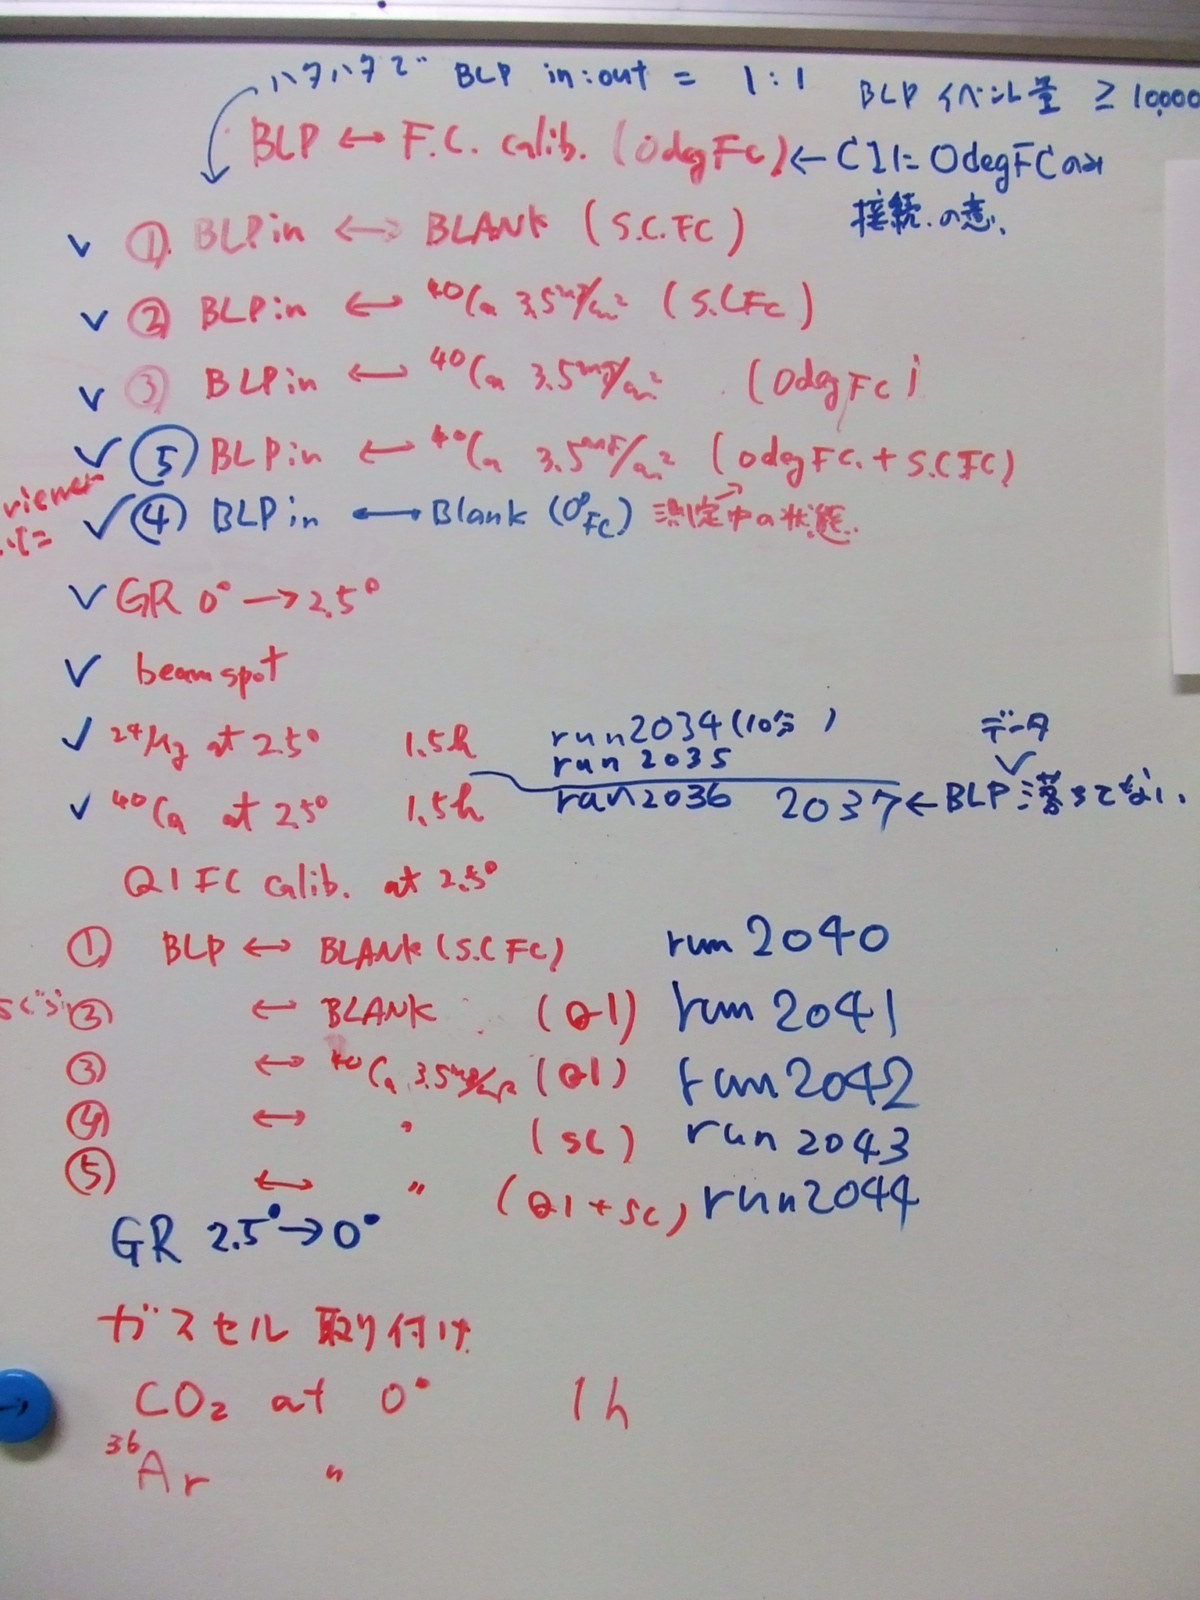 ハタハタで BLP in:out = 1:1 BLP イベント量 ≥ 10,000
BLP ↔ F.C. calib. (0degFC) ← CIに 0degFCのみ
接続の意、
✓ ① BLP in ↔ BLANK (S.C.FC)
✓ ② BLP in ↔ ⁴⁰Ca 3.5mg/cm² (S.C.FC)
✓ ③ BLP in ↔ ⁴⁰Ca 3.5mg/cm² (0degFC)
✓ ⑤ BLP in ↔ ⁴⁰Ca 3.5mg/cm² (0degFC. + S.C.FC)
viewer
✓ ④ BLP in ↔ Blank (0°FC) 測定中の状態.
✓ GR 0° → 2.5°
✓ beam spot
✓ ²⁴Mg at 2.5° 1.5h run2034 (10分)
run 2035
データ
✓ ⁴⁰Ca at 2.5° 1.5h run2036 2037 ← BLP 落ちてない.
Q1 FC calib. at 2.5°
① BLP ↔ BLANK (S.C FC) run 2040
② ↔ BLANK (Q1) run 2041
③ ↔ ⁴⁰Ca 3.5mg/cm² (Q1) run 2042
④ ↔ 〃 (SC) run 2043
⑤ ↔ 〃 (Q1 + SC) run2044
GR 2.5° → 0°
ガスセル 取り付け
CO₂ at 0° 1h
³⁶Ar 〃